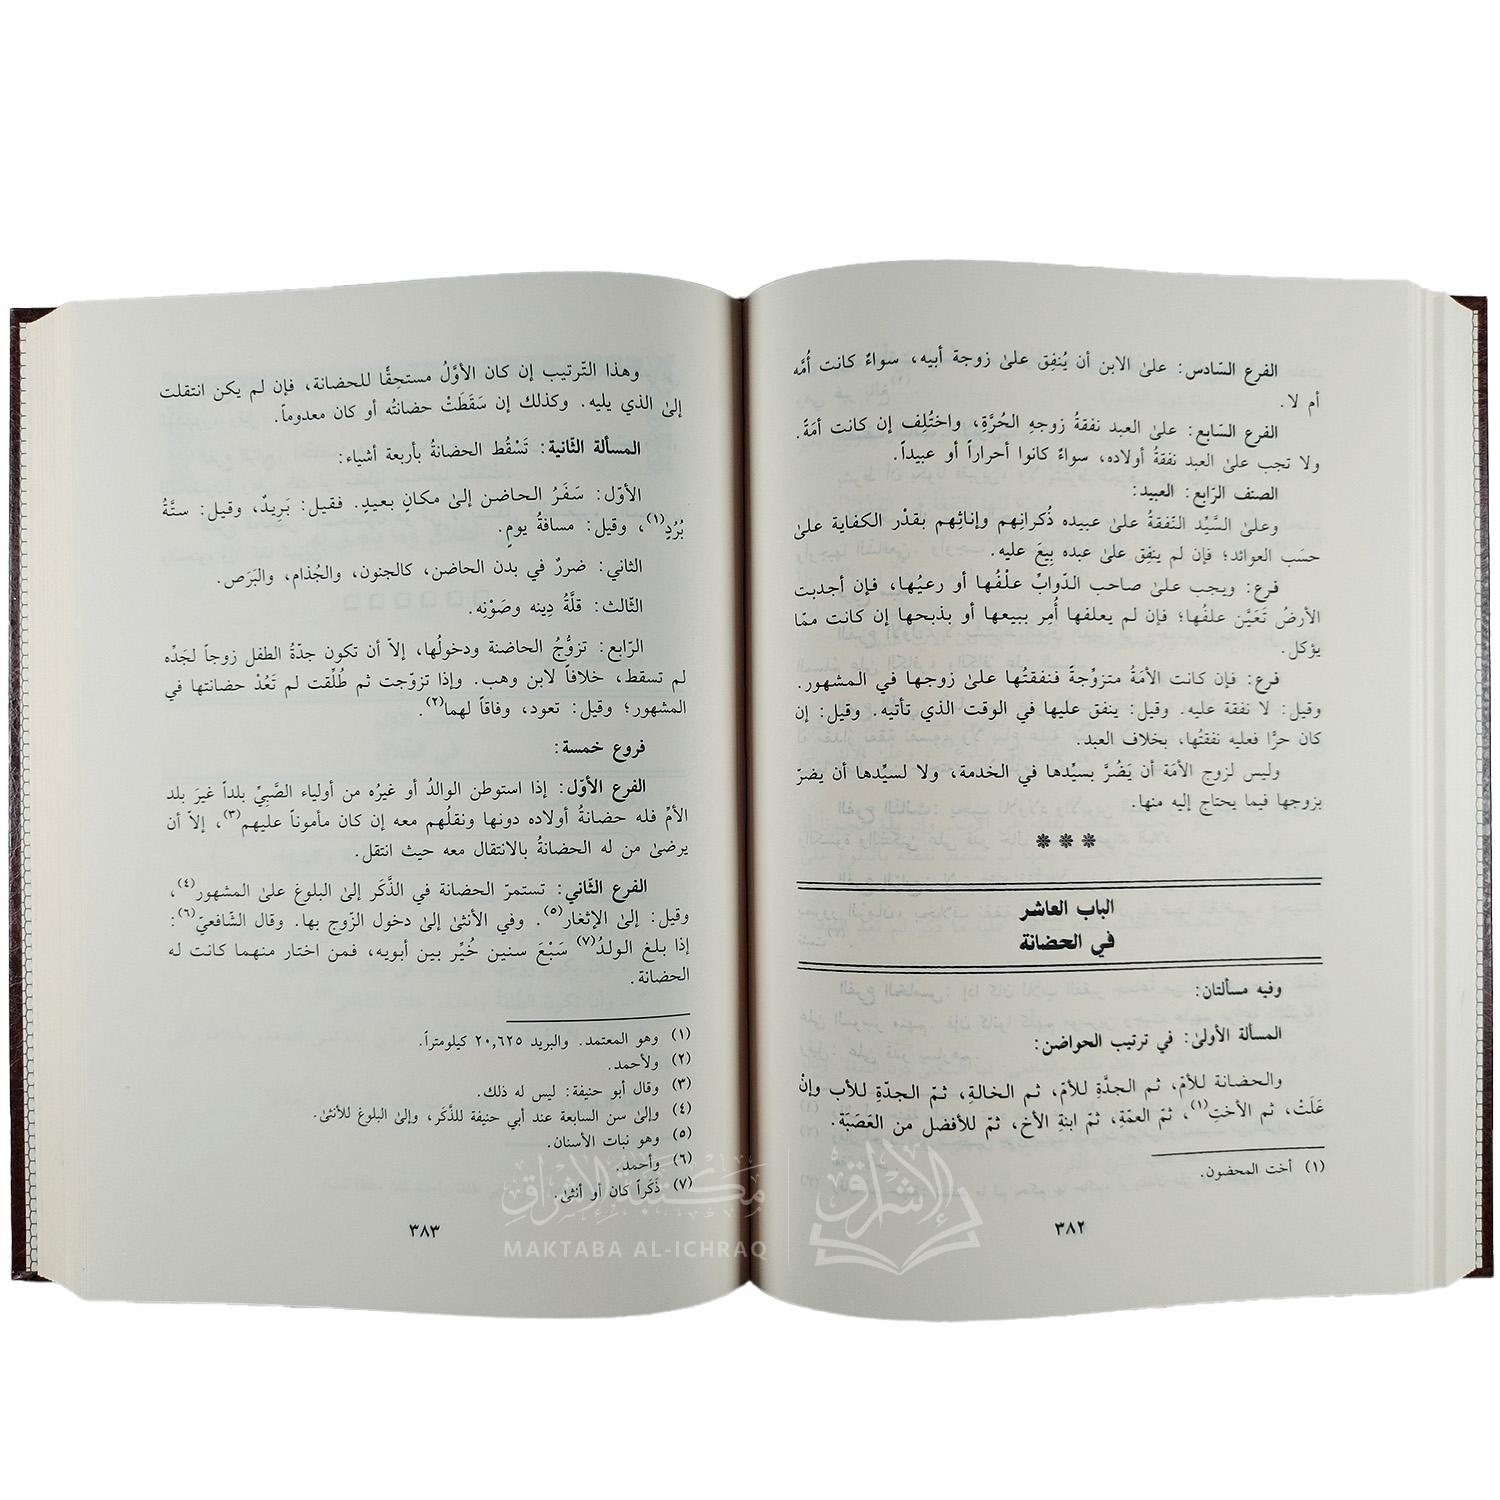 الفرع السّادس: علىٰ الابن أن يُنفِق علىٰ زوجة أبيه، سواءٌ كانت أُمَّه
أم لا.
الفرع السّابع: علىٰ العبد نفقةُ زوجهِ الحُرَّةِ، واختُلِف إن كانت أمَةً.
ولا تجب علىٰ العبد نفقةُ أولاده، سواءٌ كانوا أحراراً أو عبيداً.
الصنف الرّابع: العبيد:
وعلىٰ السَّيِّد النّفقةُ علىٰ عبيده ذُكرانِهم وإناثِهم بقدْر الكفاية علىٰ
حسَب العوائد؛ فإن لم ينفِق علىٰ عبده بِيعَ عليه.
فرع: ويجب علىٰ صاحب الدّوابِّ علْفُها أو رعيُها، فإن أجدبت
الأرضُ تَعَيَّن علفُها؛ فإن لم يعلفها أُمِر ببيعها أو بذبحها إن كانت ممّا
يؤكل.
فرع: فإن كانت الأمَةُ متزوِّجةً فنفقتُها علىٰ زوجها في المشهور.
وقيل: لا نفقة عليه. وقيل: ينفق عليها في الوقت الذي تأتيه. وقيل: إن
كان حرًّا فعليه نفقتُها، بخلاف العبد.
وليس لزوج الأمَة أن يَضُرَّ بسيِّدها في الخدمة، ولا لسيِّدها أن يضرّ
بزوجها فيما يحتاج إليه منها.
***
الباب العاشر
في الحضانة
وفيه مسألتان:
المسألة الأولىٰ: في ترتيب الحواضن:
والحضانة للأمّ، ثم الجدَّةِ للأمّ، ثم الخالةِ، ثمّ الجدّةِ للأب وإنْ
عَلَتْ، ثم الأختِ(١)، ثمّ العمّةِ، ثمّ ابنةِ الأخ، ثمّ للأفضل من العَصَبَة.
(١) أخت المحضون.
٣٨٢
وهذا التّرتيب إن كان الأوَّلُ مستحِقًّا للحضانة، فإن لم يكن انتقلت
إلىٰ الذي يليه. وكذلك إن سَقَطَتْ حضانتُه أو كان معدوماً.
المسألة الثّانية: تَسْقُط الحضانةُ بأربعة أشياء:
الأوّل: سَفَرُ الحاضن إلىٰ مكانٍ بعيدٍ. فقيل: بَرِيدٌ، وقيل: ستَّةُ
بُرُدٍ(١)، وقيل: مسافةُ يومٍ.
الثاني: ضررٌ في بدن الحاضن، كالجنون، والجُذام، والبَرَص.
الثّالث: قلَّةُ دِينه وصَوْنِه.
الرّابع: تزوُّجُ الحاضنة ودخولُها، إلاّ أن تكون جدّةُ الطفل زوجاً لجَدّه
لم تسقط، خلافاً لابن وهب. وإذا تزوّجت ثم طُلِّقت لم تَعُدْ حضانتها في
المشهور؛ وقيل: تعود، وفاقاً لهما(٢).
فروع خمسة:
الفرع الأوّل: إذا استوطن الوالدُ أو غيرُه من أولياء الصَّبِيِّ بلداً غيرَ بلد
الأمِّ فله حضانةُ أولاده دونها ونقلُهم معه إن كان مأموناً عليهم(٣)، إلاّ أن
يرضىٰ من له الحضانةُ بالانتقال معه حيث انتقل.
الفرع الثّاني: تستمرّ الحضانة في الذَّكَر إلىٰ البلوغ علىٰ المشهور(٤)،
وقيل: إلىٰ الإثغار(٥). وفي الأنثىٰ إلىٰ دخول الزّوج بها. وقال الشّافعيّ(٦):
إذا بلغ الولدُ(٧) سَبْعَ سنين خُيِّر بين أبويه، فمن اختار منهما كانت له
الحضانة.
(١) وهو المعتمد. والبريد ٢٠,٦٢٥ كيلومتراً.
(٢) ولأحمد.
(٣) وقال أبو حنيفة: ليس له ذلك.
(٤) وإلىٰ سن السابعة عند أبي حنيفة للذَّكَر، وإلىٰ البلوغ للأنثىٰ.
(٥) وهو نبات الأسنان.
(٦) وأحمد.
(٧) ذَكَراً كان أو أنثىٰ.
٣٨٣
مكتبة الإشراق
MAKTABA AL-ICHRAQ
الإشراق